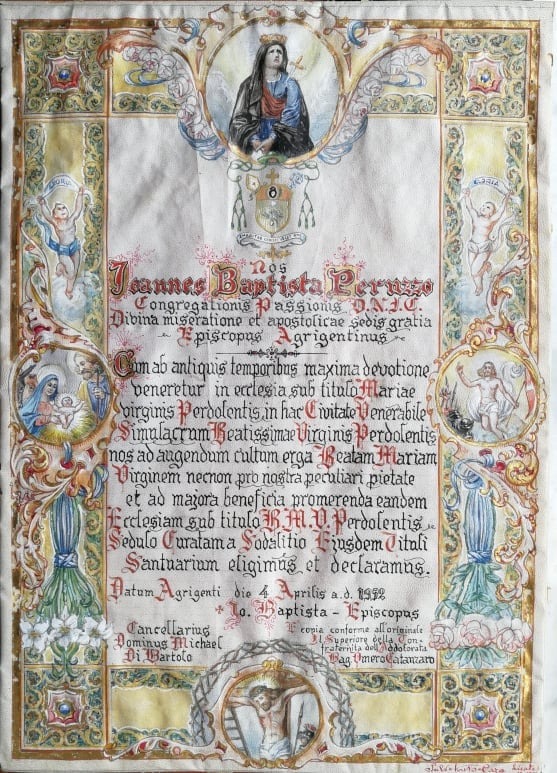 GLORIA
GLORIA
Nos
Ioannes Baptista Peruzzo
Congregationis Passionis D.N.I.C.
Divina miseratione et apostolicae sedis gratia
Episcopus Agrigentinus
Cum ab antiquis temporibus maxima devotione
veneretur in ecclesia sub titulo Mariae
virginis Perdolentis, in hac Civitate Venerabile
Simulacrum Beatissimae Virginis Perdolentis
nos ad augendum cultum erga Beatam Mariam
Virginem necnon pro nostra peculiari pietate
et ad majora beneficia promerenda eandem
Ecclesiam sub titulo B.M.V. Perdolentis
Sedulo Curatam a Sodalitio Ejusdem Tituli
Santuarium eligimus et declaramus.
Datum Agrigenti die 4 Aprilis a.d. 1952
Io. Baptista - Episcopus
Cancellarius
Dominus Michael
Di Bartolo
E copia conforme all'originale
Il Superiore della Con-
fraternita dell'Addolorata
Rag. Vincro Catanzaro